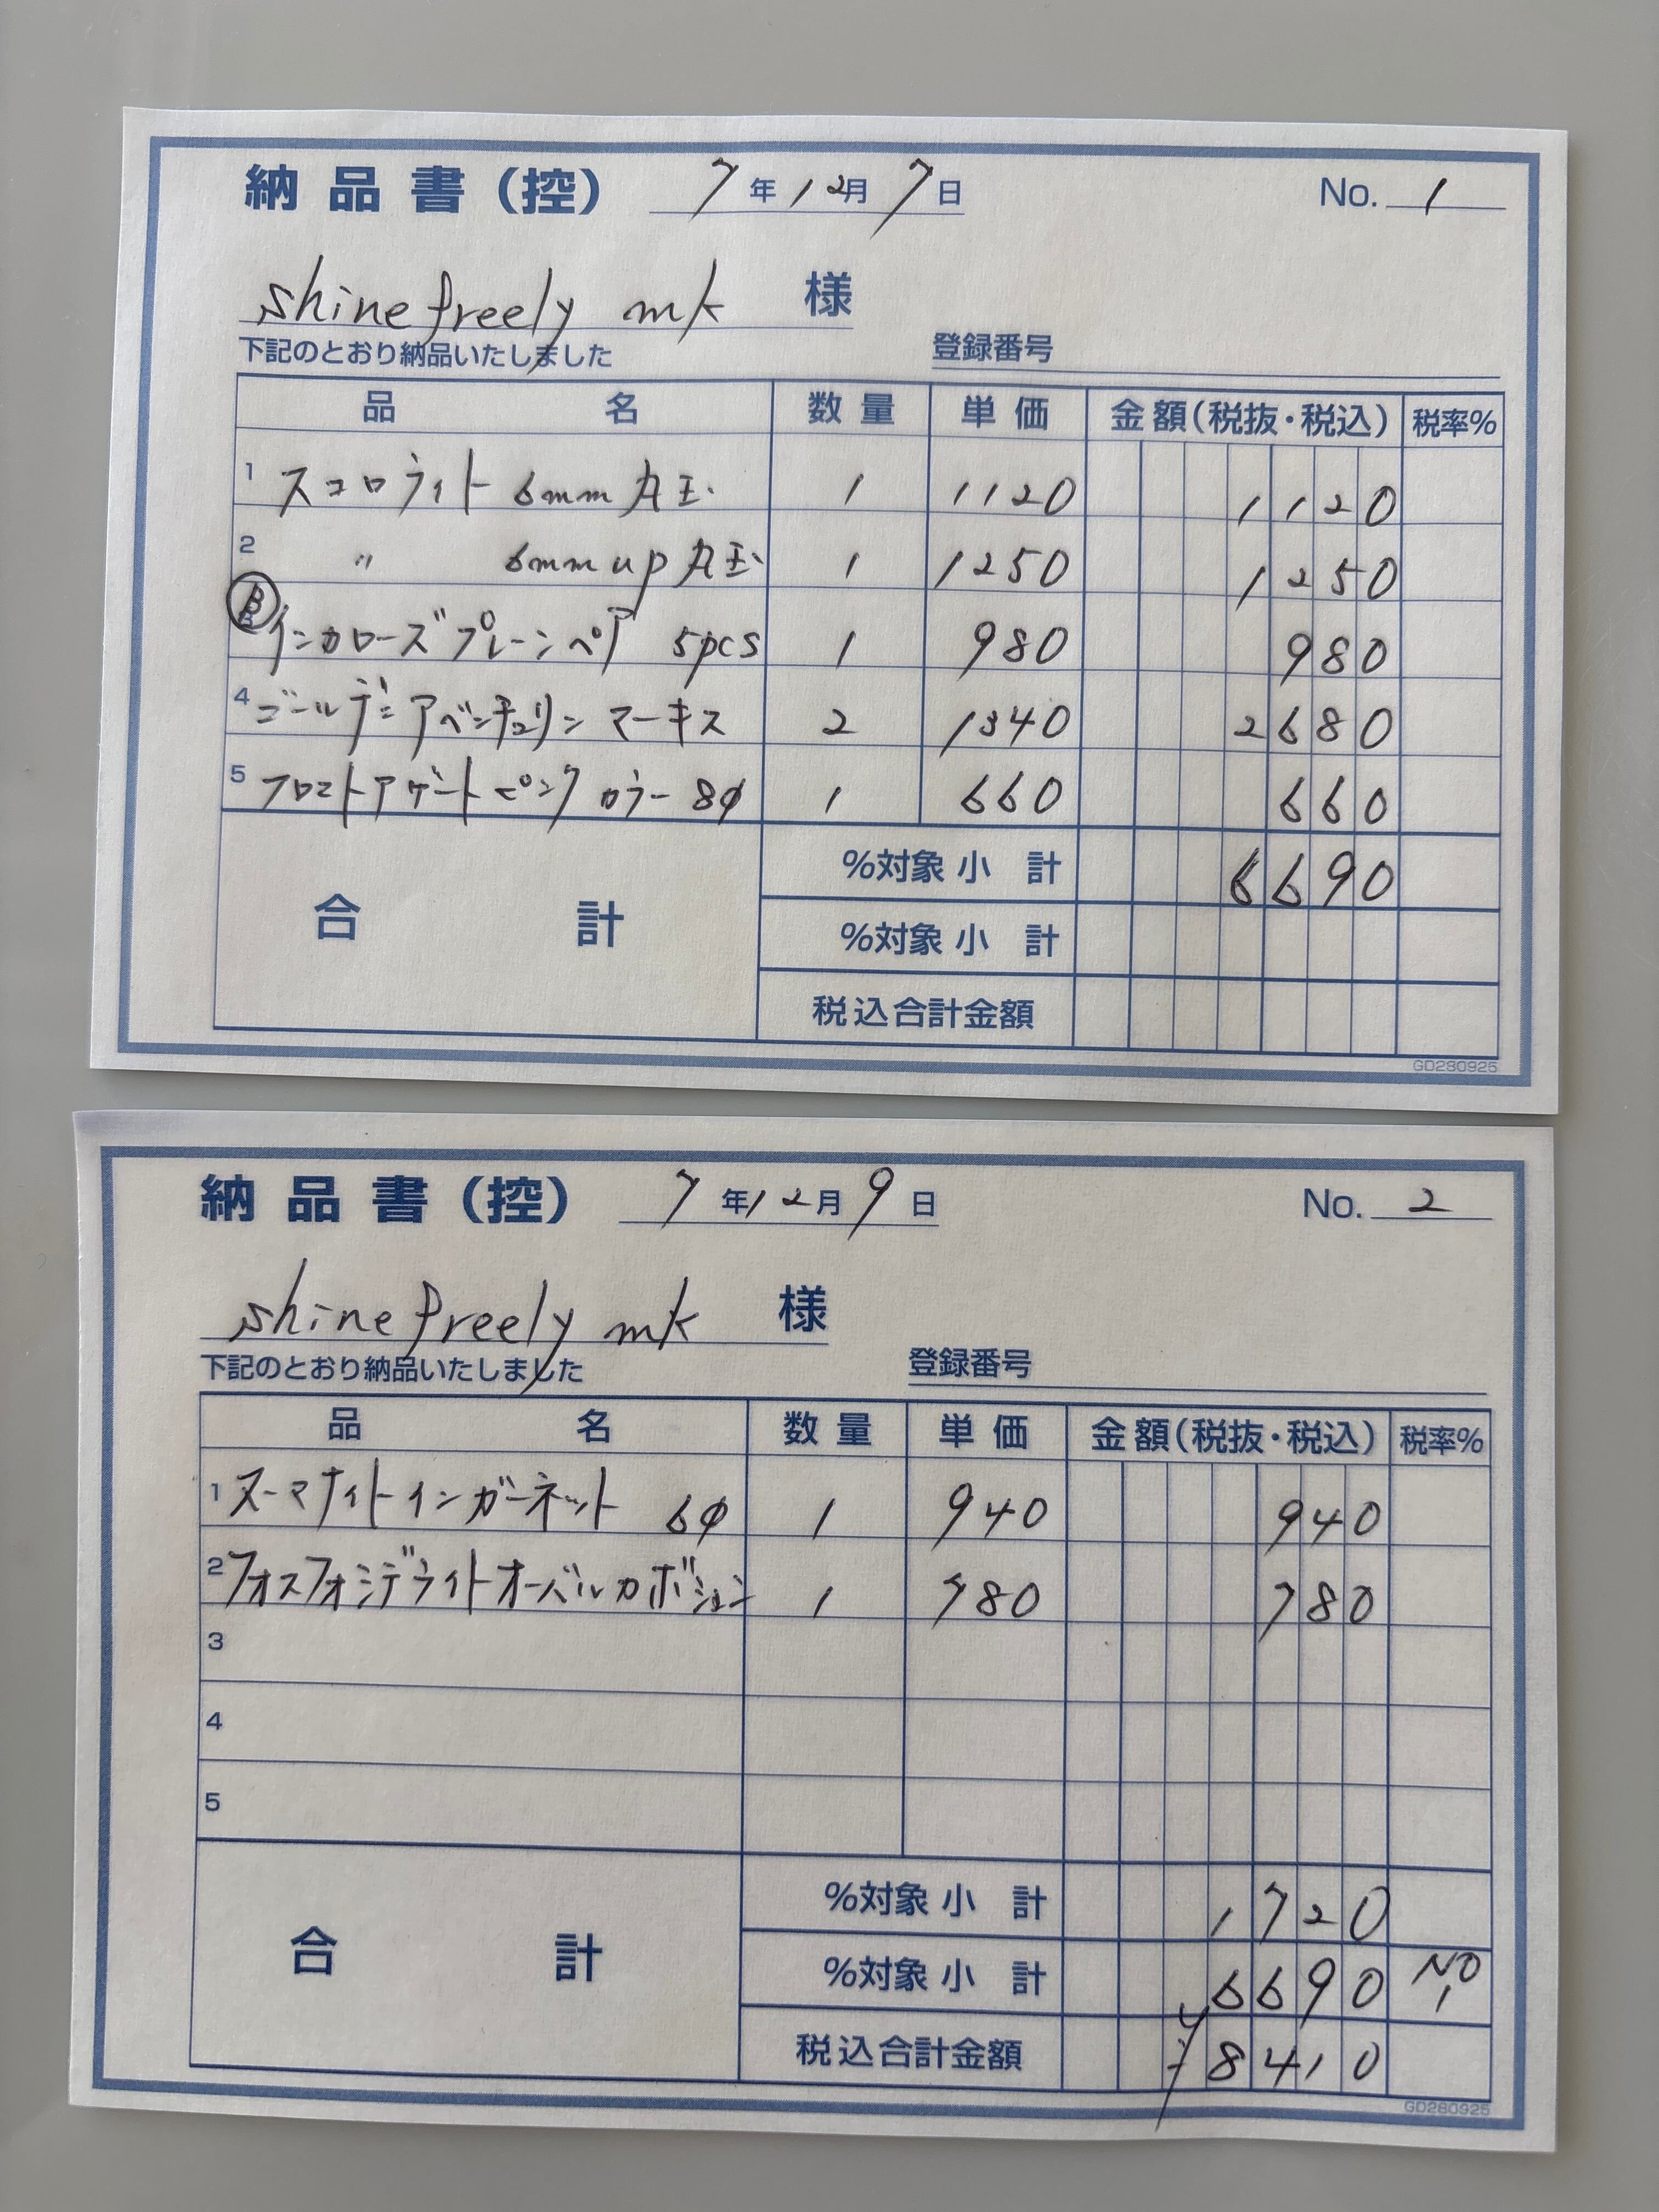 納品書(控) 7年12月7日 No. 1
shine freely mk 様
下記のとおり納品いたしました 登録番号
品名 数量 単価 金額(税抜・税込) 税率%
1 スコロライト 6mm 丸玉 1 1120 1120
2 〃 6mm up 丸玉 1 1250 1250
Ⓑ インカローズプレーンペア 5pcs 1 980 980
4 ゴールデンアベンチュリン マーキス 2 1340 2680
5 フロストアゲートピンクカラー 8φ 1 660 660
%対象 小計 6690
合計 %対象 小計
税込合計金額
GD280925
納品書(控) 7年12月9日 No. 2
shine freely mk 様
下記のとおり納品いたしました 登録番号
品名 数量 単価 金額(税抜・税込) 税率%
1 ヌーマナイトインガーネット 6φ 1 940 940
2 フォスフォシデライトオーバルカボション 1 780 780
3
4
5
%対象 小計 1720
合計 %対象 小計 6690 NO 1
税込合計金額 ¥8410
GD280925